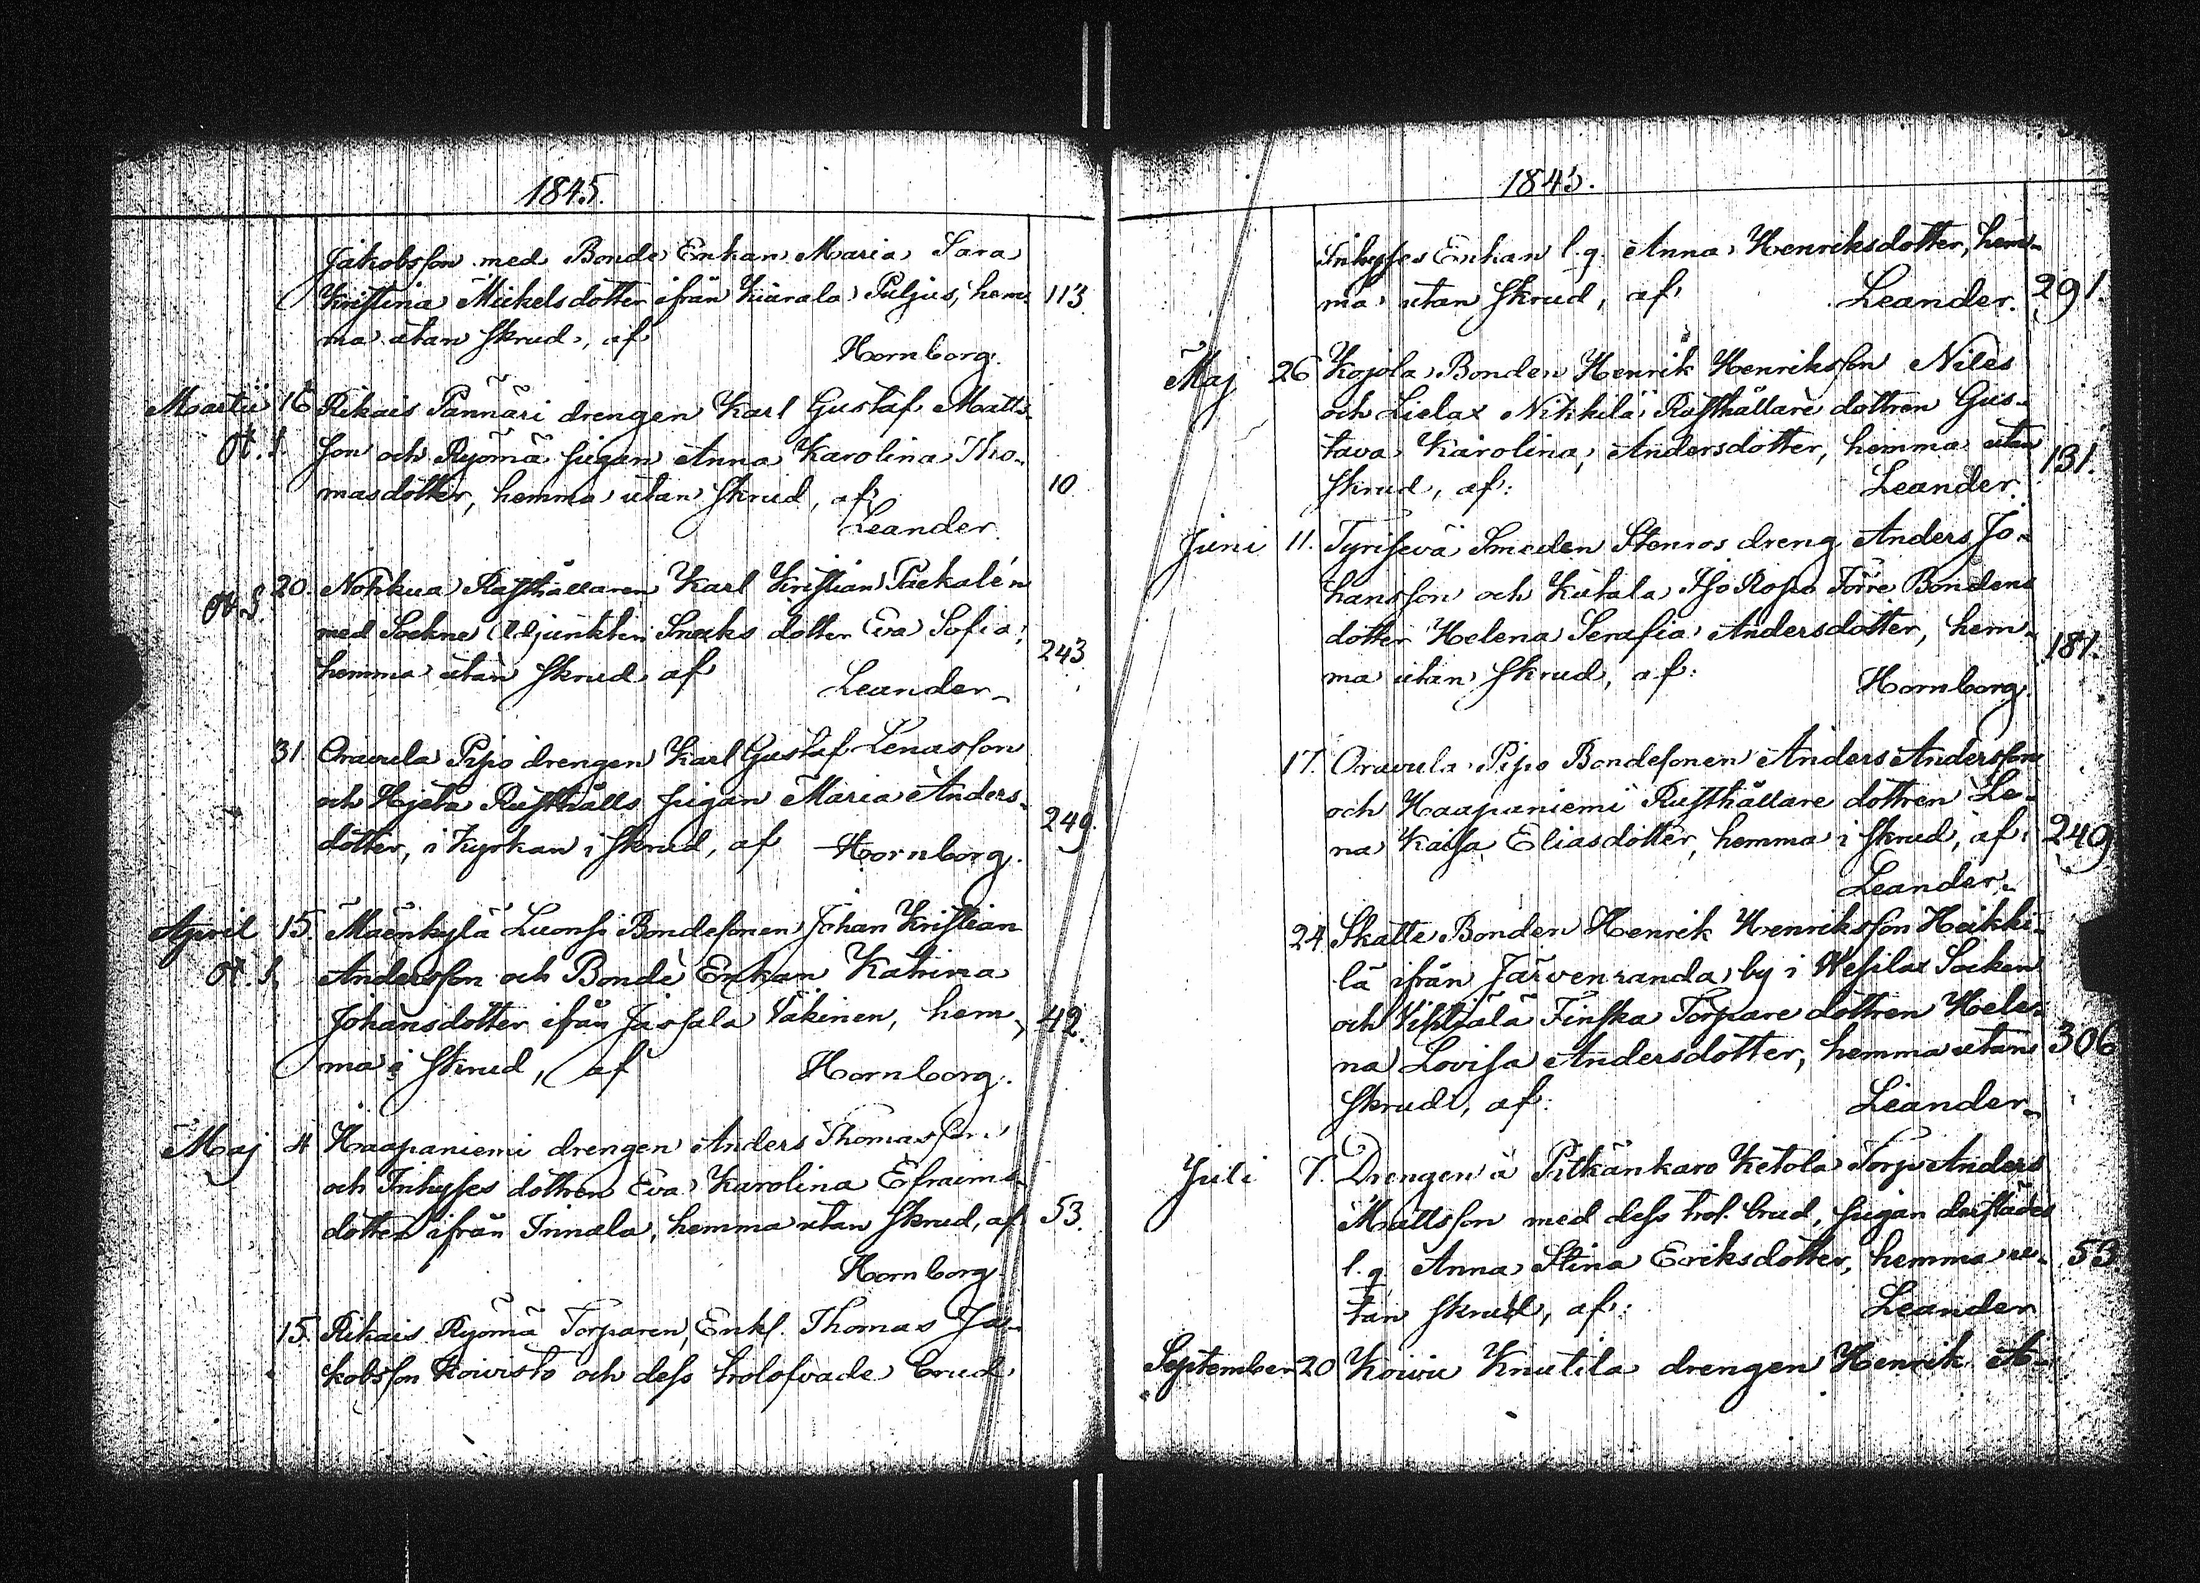 1845.
Jakobsson med Bonde Enkan Maria Sara
Kristina Mickelsdotter ifrån Kiarala Puljus, hem- 113
ma utan skrud, af
Hornborg.
Martii 16 Rikais Pannari drengen Karl Gustaf Matts-
son och Ryömä pigan Anna Karolina Tho-
masdotter, hemma utan skrud, af 10
Leander.
20. Nohkua Rusthållaren Karl Kristian Packalén
med Sockne Adjunkten dotter Eva Sofia,
hemma utan skrud af 243
Leander
31 Oravula Pipo drengen Karl Gustaf Lenasson
och Hyeta Rusthålls pigan Maria Anders-
dotter, i Kyrkan i skrud, af 249.
Hornborg.
April 15. Maenkylä Luonsi Bondesonen Johan Kristian
Andersson och Bonde Enkan Katrina
Johansdotter ifrån Jassala Väkinen, hem- 42.
ma i skrud, af
Hornborg.
Maj 4 Haapaniemi drengen Anders Thomasson
och Inhyses dottren Eva Karolina Efraims-
dotter ifrån Innala, hemma utan skrud, af 53.
Hornborg.
15. Rikais Ryömä Torparen, Enkl. Thomas Ja-
kobsson Koivisto och dess trolofvade brud
1845.
Inhyses Enkan l.q. Anna Henriksdotter, hem-
ma utan skrud, af Leander. 291.
Maj 26 Kojola Bonden Henrik Henriksson Niles
och Lielax Nikkilä Rusthållare dottren Gus-
tava Karolina, Andersdotter, hemma utan 131.
skrud, af: Leander.
Juni 11. Tyrisevä Smeden Stenros dreng Anders Jo-
hansson och Kutala Iso Ropo Törre Bondens
dotter Helena Serafia Andersdotter, hem- 181.
ma utan skrud, af:
Hornborg.
17. Oravula Pipo Bondesonen Anders Andersson
och Haapaniemi Rusthållare dottren Le-
na Kaisa Eliasdotter, hemma i skrud, af: 249
Leander.
24 Skatte Bonden Henrik Henriksson Heikki-
lä ifrån Järvenranda by i Wesilax Socken
och Vihtjälä Finska Torpare dottren Hele-
na Lovisa Andersdotter, hemma utan 306
skrud, af: Leander
Juli 7. Drengen å Pitkänkaro Ketola Torp Anders
Mattsson med dess trol. brud, pigan derstädes
l.q. Anna Stina Eriksdotter, hemma u- 53.
tan skrud, af: Leander
September 20 Kowu Knutila drengen Henrik A-